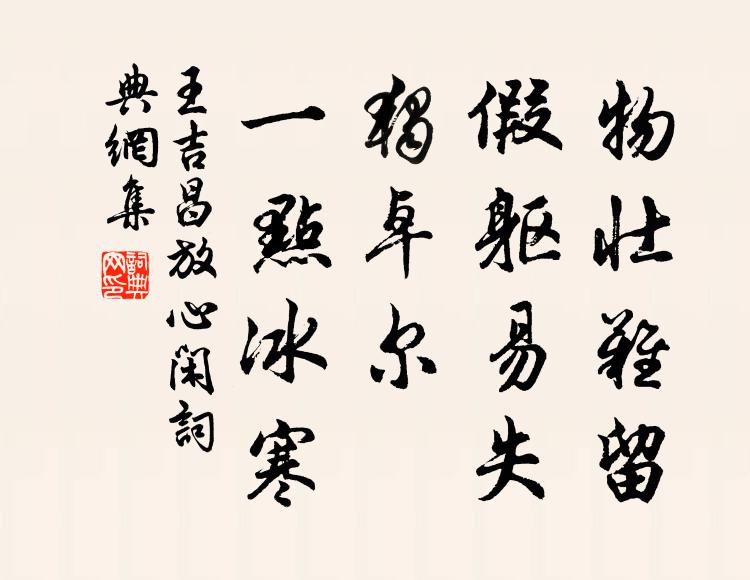 物壮難留
假躯易失
獨卓尔
一點冰寒
王吉昌放心閑詞
典網集
詞典
网印